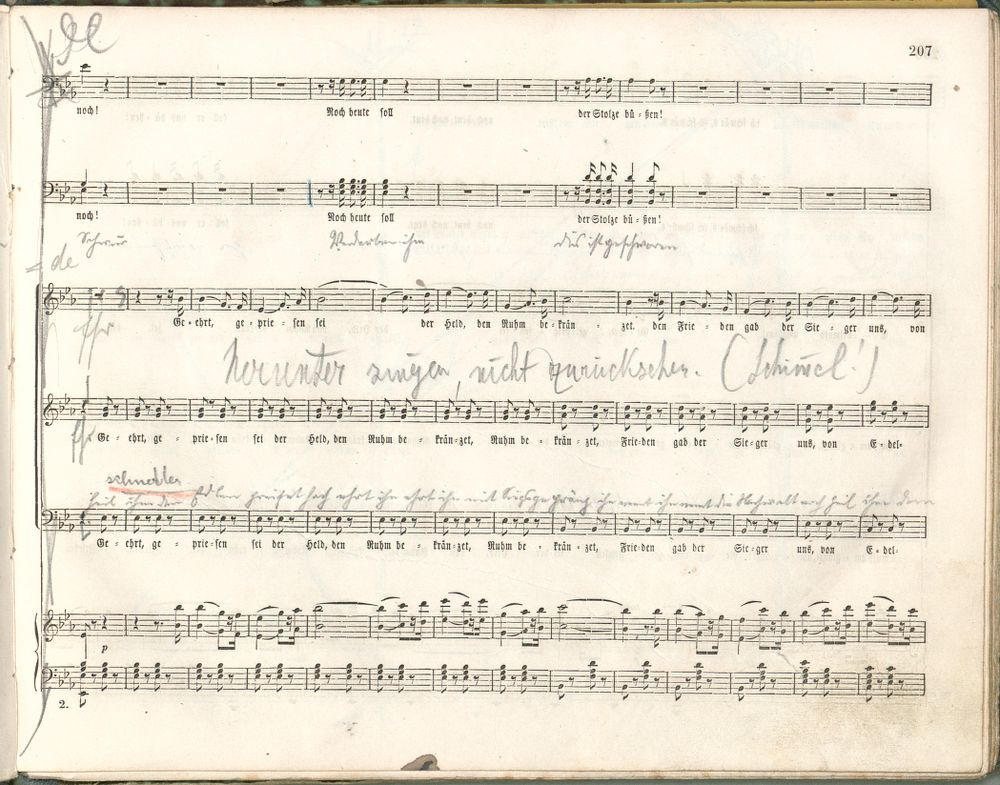 207
noch! Noch heute soll der Stolze bü-ßen!
noch! Noch heute soll der Stolze bü-ßen!
Schwur Verderben ihm dies ist geschworen
= de
Ge-ehrt, ge-prie-sen sei der Held, den Ruhm be-krän-zet. den Frie-den gab der Sie-ger uns, von
herunter singen, nicht zurücksehen. (Schimel!)
Ge-ehrt, ge-prie-sen sei der Held, den Ruhm be-krän-zet, Ruhm be-krän-zet, Frie-den gab der Sie-ger uns, von E-del-
schneller
Heil ihm dem Edlen preiset hoch ehrt ihn ehrt ihn mit
Ge-ehrt, ge-prie-sen sei der Held, den Ruhm be-krän-zet, Ruhm be-krän-zet, Frie-den gab der Sie-ger uns, von E-del-
p
2.